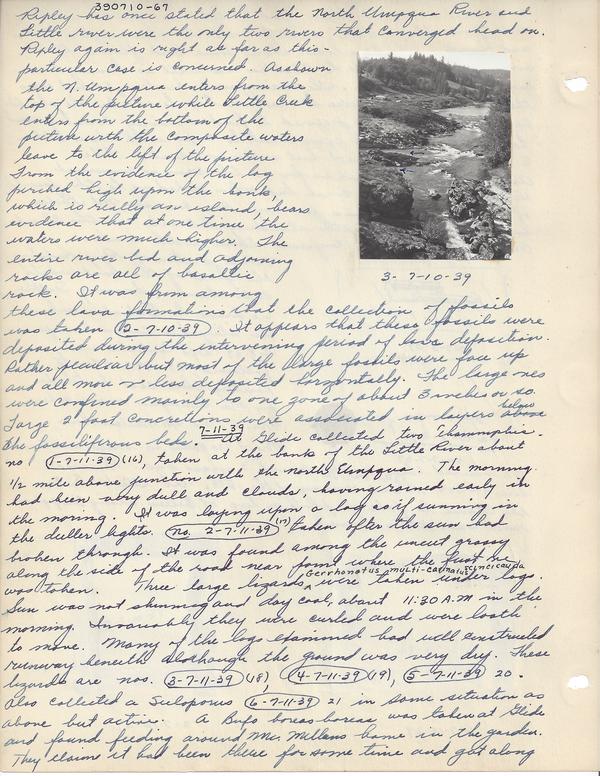 390710-67
Ripley has once stated that the North Umpqua River and
Little river were the only two rivers that converged head on.
Ripley again is right as far as this
particular case is concerned. As shown
the N. Umpqua enters from the
top of the picture while Little Creek
enters from the bottom of the
picture with the composite waters
leave to the left of the picture
From the evidence of the log
perched high upon the bank,
which is really an island, bears
evidence that at one time the
waters were much higher. The
entire river bed and adjoining
rocks are all of basaltic
rock. It was from among
3- 7-10-39
these lava formations that the collection of fossils
was taken (2-7-10-39). It appears that these fossils were
deposited during the intervening period of lava deposition.
Rather peculiar but most of the large fossils were face up
and all more or less deposited horizontally. The large ones
were confined mainly to one zone of about 3 inches or so.
Large 2 foot concretions were associated in layers above below
the fossiliferous beds. 7-11-39 At Glide collected two Thamnophis-
no (1-7-11-39) (16), taken at the banks of the Little River about
1/2 mile above junction with the north Umpqua. The morning
had been very dull and clouds, having rained early in
the moring. It was laying upon a log as if sunning in
the duller lights. (no. 2-7-11-39) (17) taken after the sun had
broken through. It was found among the uncut grassy
along the side of the road near from where the first no.
was taken. Three large lizards Gerrhonotus multi-carinatus scincicauda were taken under logs.
Sun was not shinning and day cool, about 11:30 A.M in the
morning. Invariably they were curled and were loath
to move. Many of the logs examined had well constructed
runway beneath alothough the ground was very dry. These
lizards are nos. (3-7-11-39) (18), (4-7-11-39) (19), (5-7-11-39) 20.
Also collected a Sceloporus (6-7-11-39) 21 in same situation as
above but active. A Bufo boreas boreas was taken at Glide
and found feeding around Mc. Millans home in the garden.
They claim it had been there for some time and got along